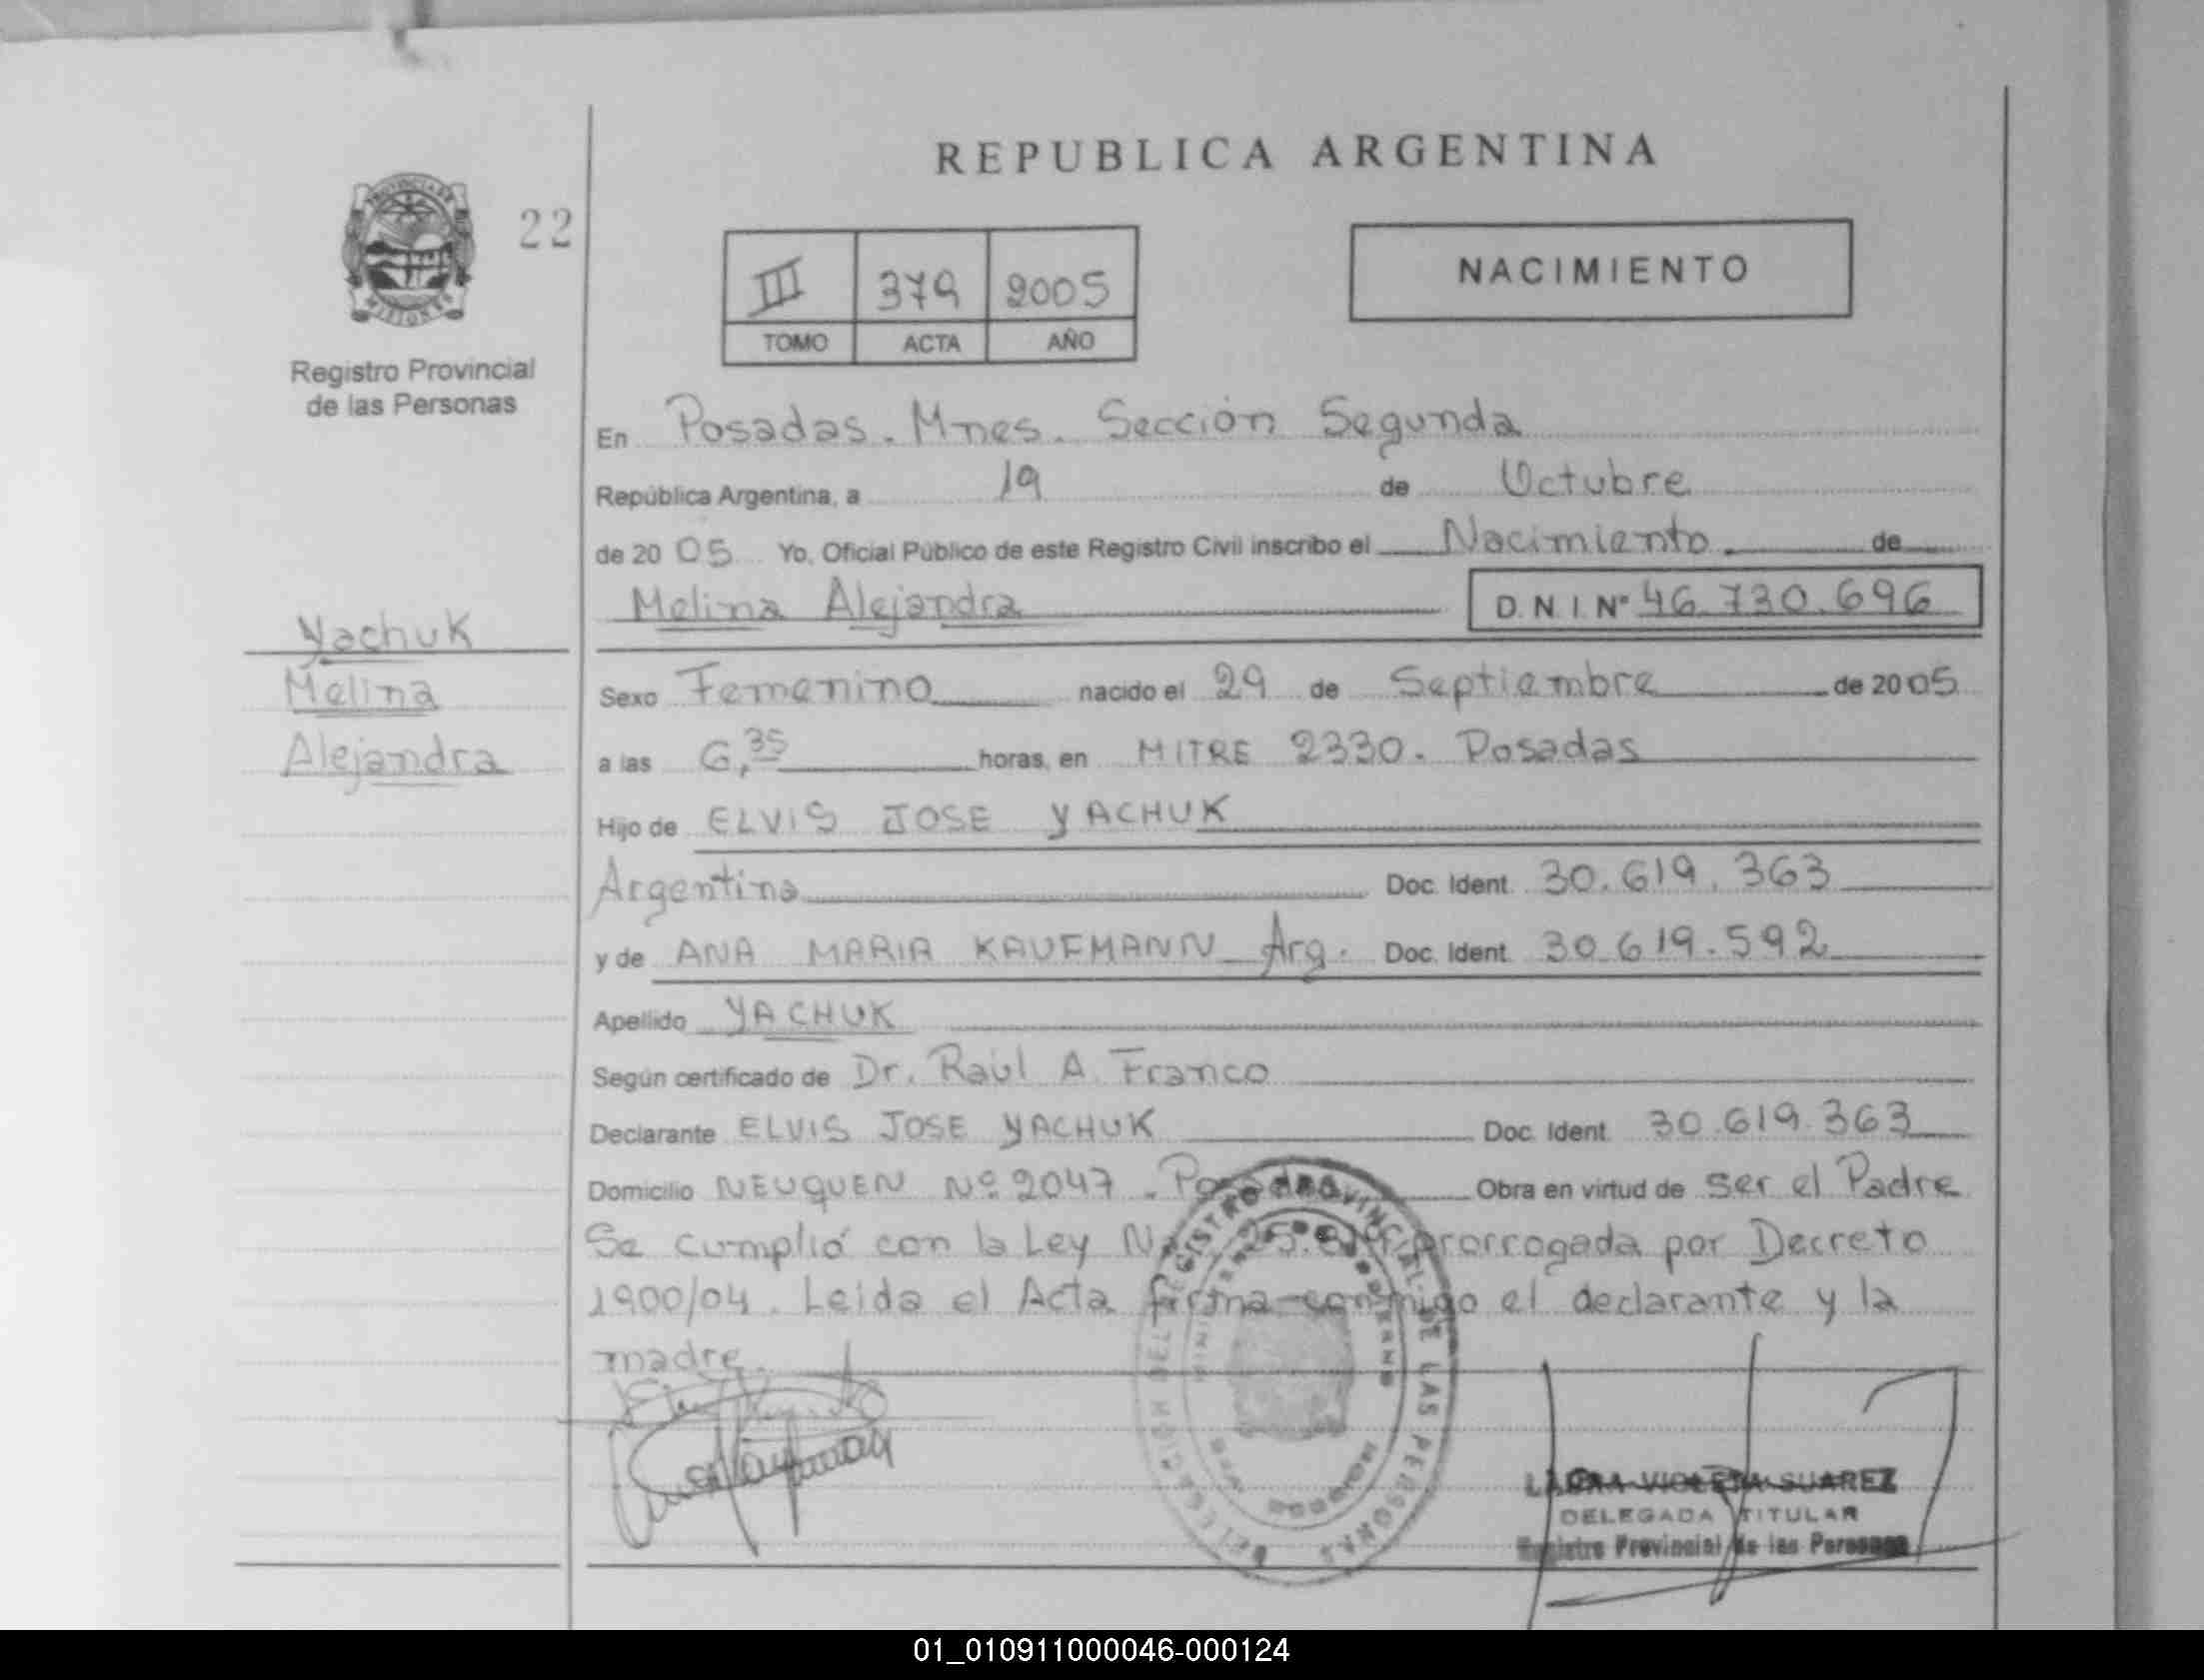 REPUBLICA ARGENTINA
PROVINCIA DE
MISIONES
22
Registro Provincial
de las Personas
III 379 2005
TOMO ACTA AÑO
NACIMIENTO
En Posadas. Mnes. Sección Segunda
República Argentina, a 19 de Octubre
de 2005 Yo, Oficial Público de este Registro Civil inscribo el Nacimiento de
Melina Alejandra D.N.I. Nº 46.730.696
Yachuk
Melina
Alejandra
Sexo Femenino nacido el 29 de Septiembre de 2005
a las 6,35 horas, en MITRE 2330. Posadas
Hijo de ELVIS JOSE YACHUK
Argentina Doc. Ident. 30.619.363
y de ANA MARIA KAUFMANN Arg. Doc. Ident. 30.619.592
Apellido YACHUK
Según certificado de Dr. Raúl A. Franco
Declarante ELVIS JOSE YACHUK Doc. Ident. 30.619.363
Domicilio NEUQUEN Nº 2047. Posadas Obra en virtud de ser el Padre
Se cumplió con la Ley prorrogada por Decreto
1900/04. Leida el Acta firma conmigo el declarante y la
madre.
REGISTRO PROVINCIAL DE LAS PERSONAS
LAURA VIOLETA SUAREZ
DELEGADA TITULAR
Registro Provincial de las Personas
01_010911000046-000124